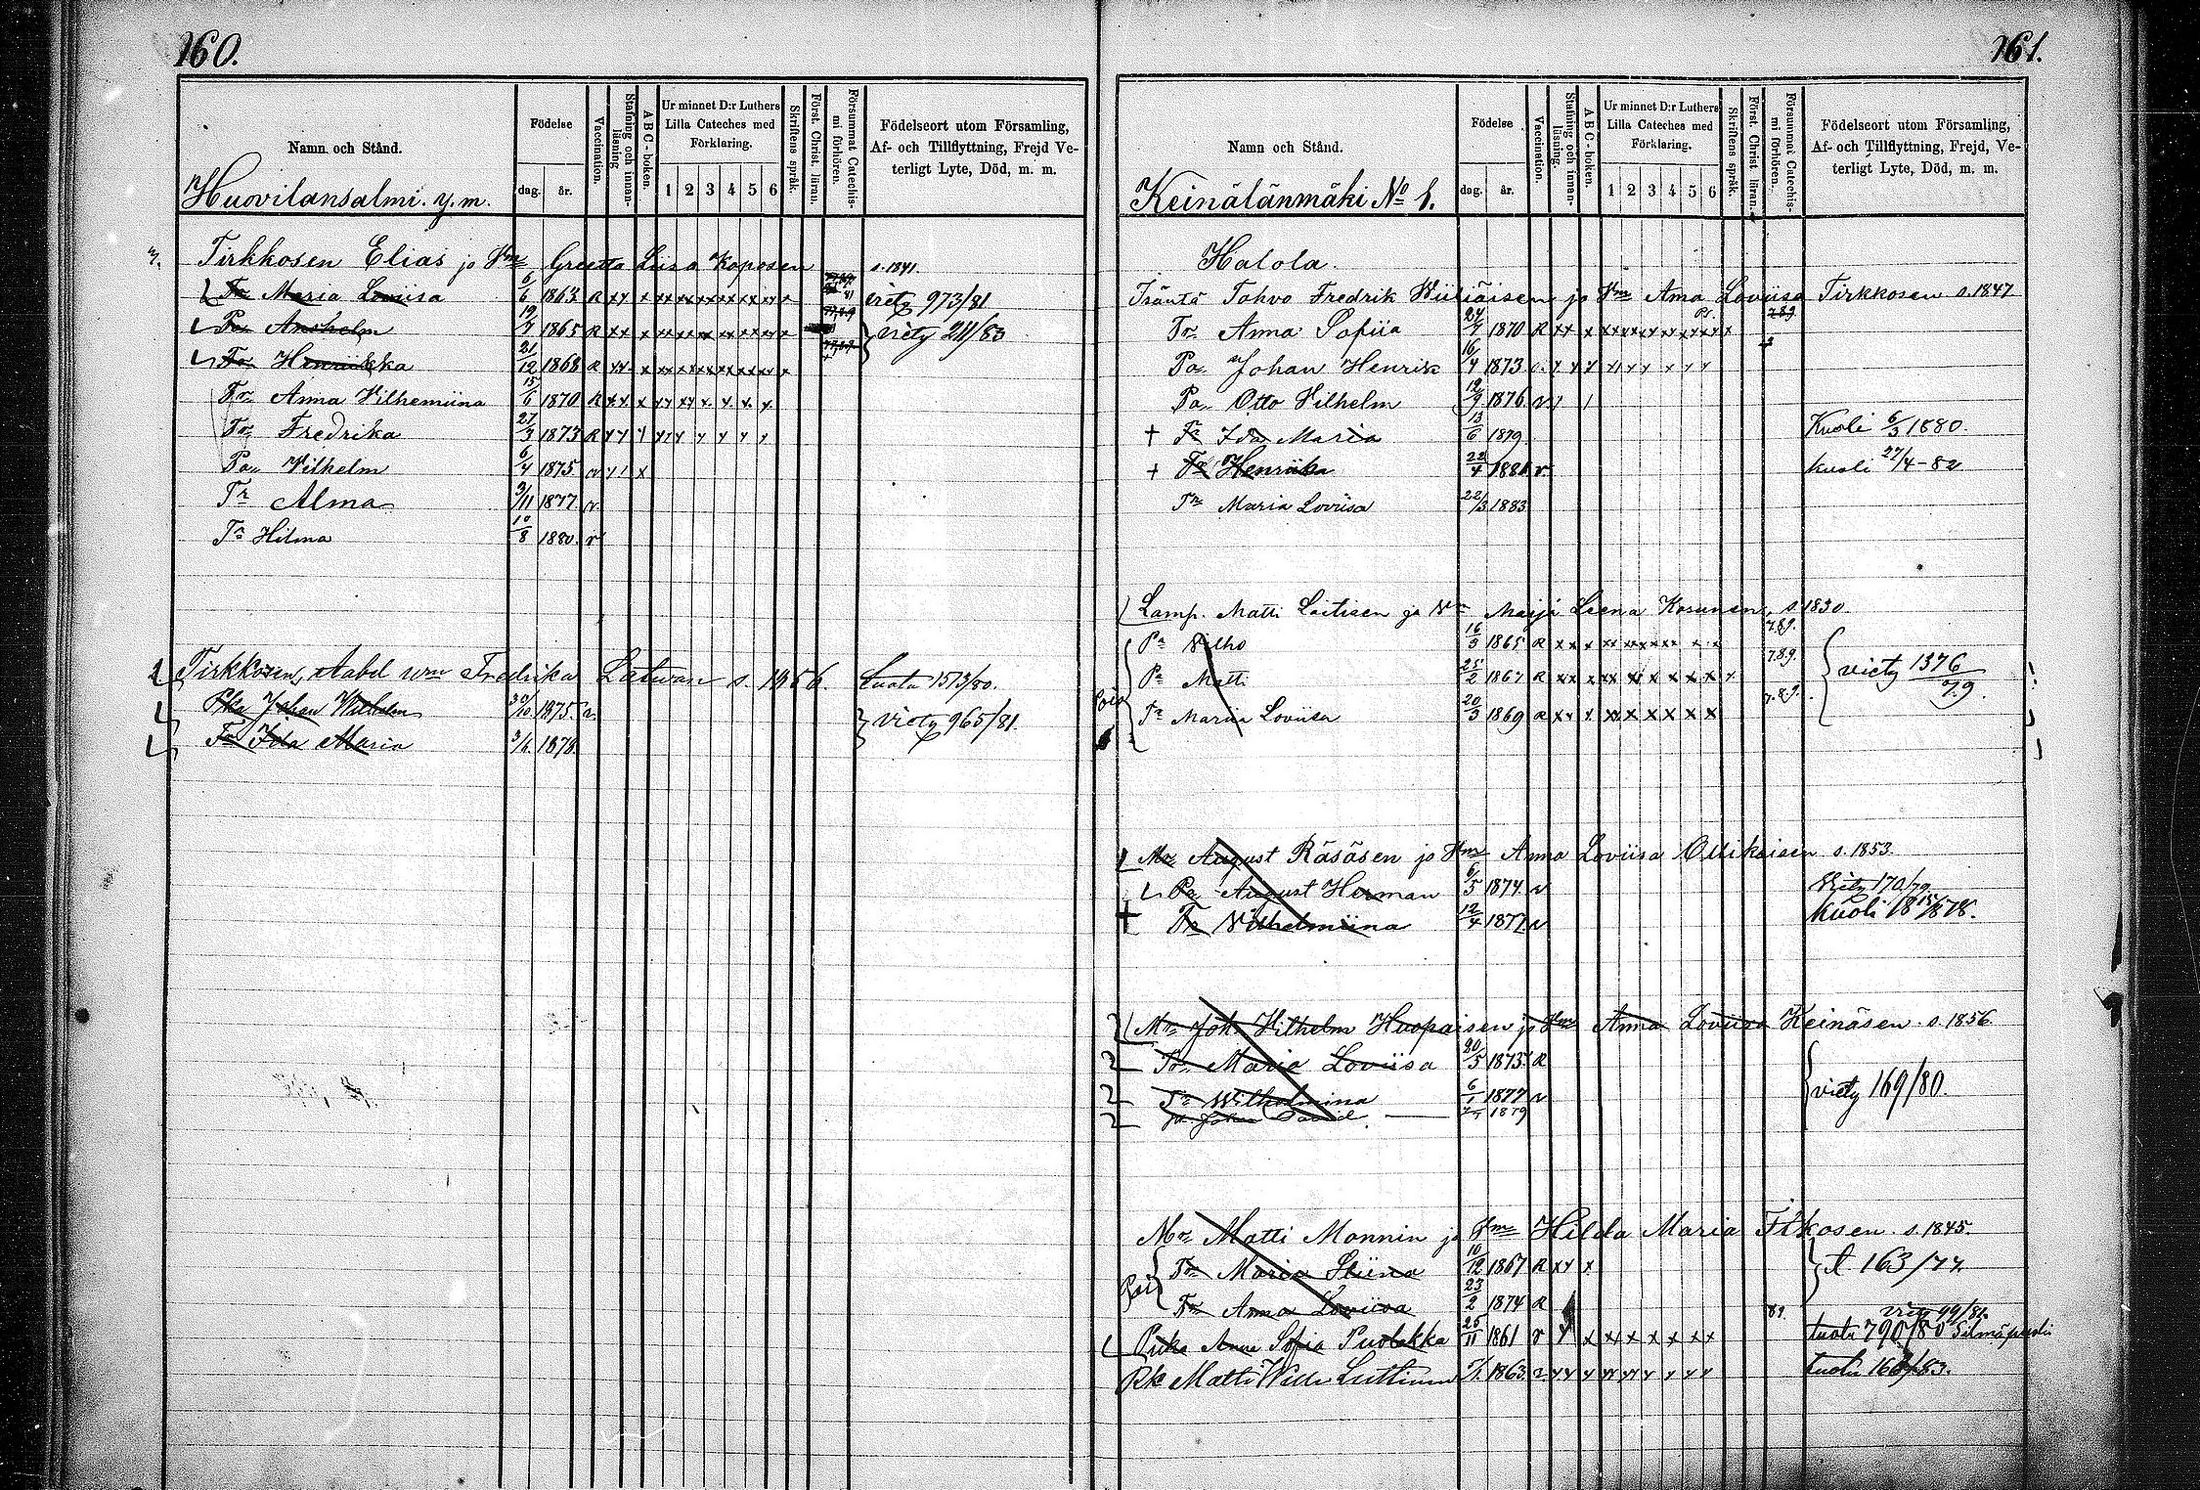 160.
Namn och Stånd.
Födelse
dag.
år.
Vaccination.
Stafning och innanläsning
ABC-boken.
Ur minnet D:r Luthers Lilla Cateches med Förklaring.
1 2 3 4 5 6
Skriftens språk.
Först. Christ. läran.
Försummat Catechismi förhören.
Födelseort utom Församling, Af- och Tillflyttning, Frejd Veterligt Lyte, Död, m. m.
Huovilansalmi. y.m.
Tirkkosen Elias ja Vm Greetta Liisa Koposen s. 1841.
Tr Maria Loviisa 6/6 1863 R viety 973/81
Pa Anshelm 19/7 1865 R viety 211/83
Tr Henriikka 21/12 1868 R
Tr Anna Vilhemiina 15/6 1870 R
Tr Fredrika 27/3 1873 R
Pa Vilhelm 6/4 1875 v
Tr Alma 3/11 1877 v
Tr Hilma 10/8 1880. v
Tirkkosen, Aabel wm Fredrika Latwan s. 1856. tuotu 1573/80.
Pka Johan Wilhelm 30/10 1875. v viety 965/81.
Tr Ida Maria 3/6. 1878.
161.
Namn och Stånd.
Födelse
dag.
år.
Vaccination.
Stafning och innanläsning.
ABC-boken.
Ur minnet D:r Luthers Lilla Cateches med Förklaring.
1 2 3 4 5 6
Skriftens språk.
Först. Christ läran.
Försummat Catechismi förhören.
Födelseort utom Församling, Af- och Tillflyttning, Frejd, Veterligt Lyte, Död, m. m.
Keinälänmäki No 1.
Halola.
Isäntä Tahvo Fredrik ja Vm Anna Loviisa Tirkkosen s. 1847
Tr Anna Sofiia 24/7 1870 R 789
Pa Johan Henrik 16/4 1873
Pa Otto Vilhelm 12/9 1876 v
+ Tr Ida Maria 13/6 1879. Kuoli 6/3 1880.
+ Tr Henriika 22/4 1881 v. kuoli 27/4-82
Tr Maria Loviisa 22/3 1883
Lamp. Matti Laitisen ja Vm Maija Leena Kosunen, s. 1830.
Pa Vilho 16/3 1865 R 7.8.9.
Pa Matti 25/2 1867 R 7.8.9. viety 1376/79.
Tr Mariia Loviisa 20/3 1869 R 7.8.9.
Pois
Mr August Räsäsen ja Vm Anna Loviisa Ollikaisen s. 1853.
Pa August Herman 6/5 1874. v Viety 170/79.
+ Tr Vilhelmiina 12/4 1877 v Kuoli
Mr Joh. Vilhelm Huopaisen ja Vm Anna Loviisa Keinäsen s. 1856.
Tr Maria Loviisa 20/5 1873. R
Tr Wilhelmina 6/1 1877 v viety 169/80.
Pa Johan David. 1879
Mr Matti Monnin ja Vm Hilda Maria s. 1845.
Tr Maria Stiina 10/12 1867 R t 163/77.
Pois
Tr Anna Loviisa 23/2 1874 R
Piika Anna Sofia Puolakka 25/11 1861 v 81 viety 99/81. tuotu 790/80 Silmäpuoli
Rk Matti Wille 1863. tuotu 168/83.